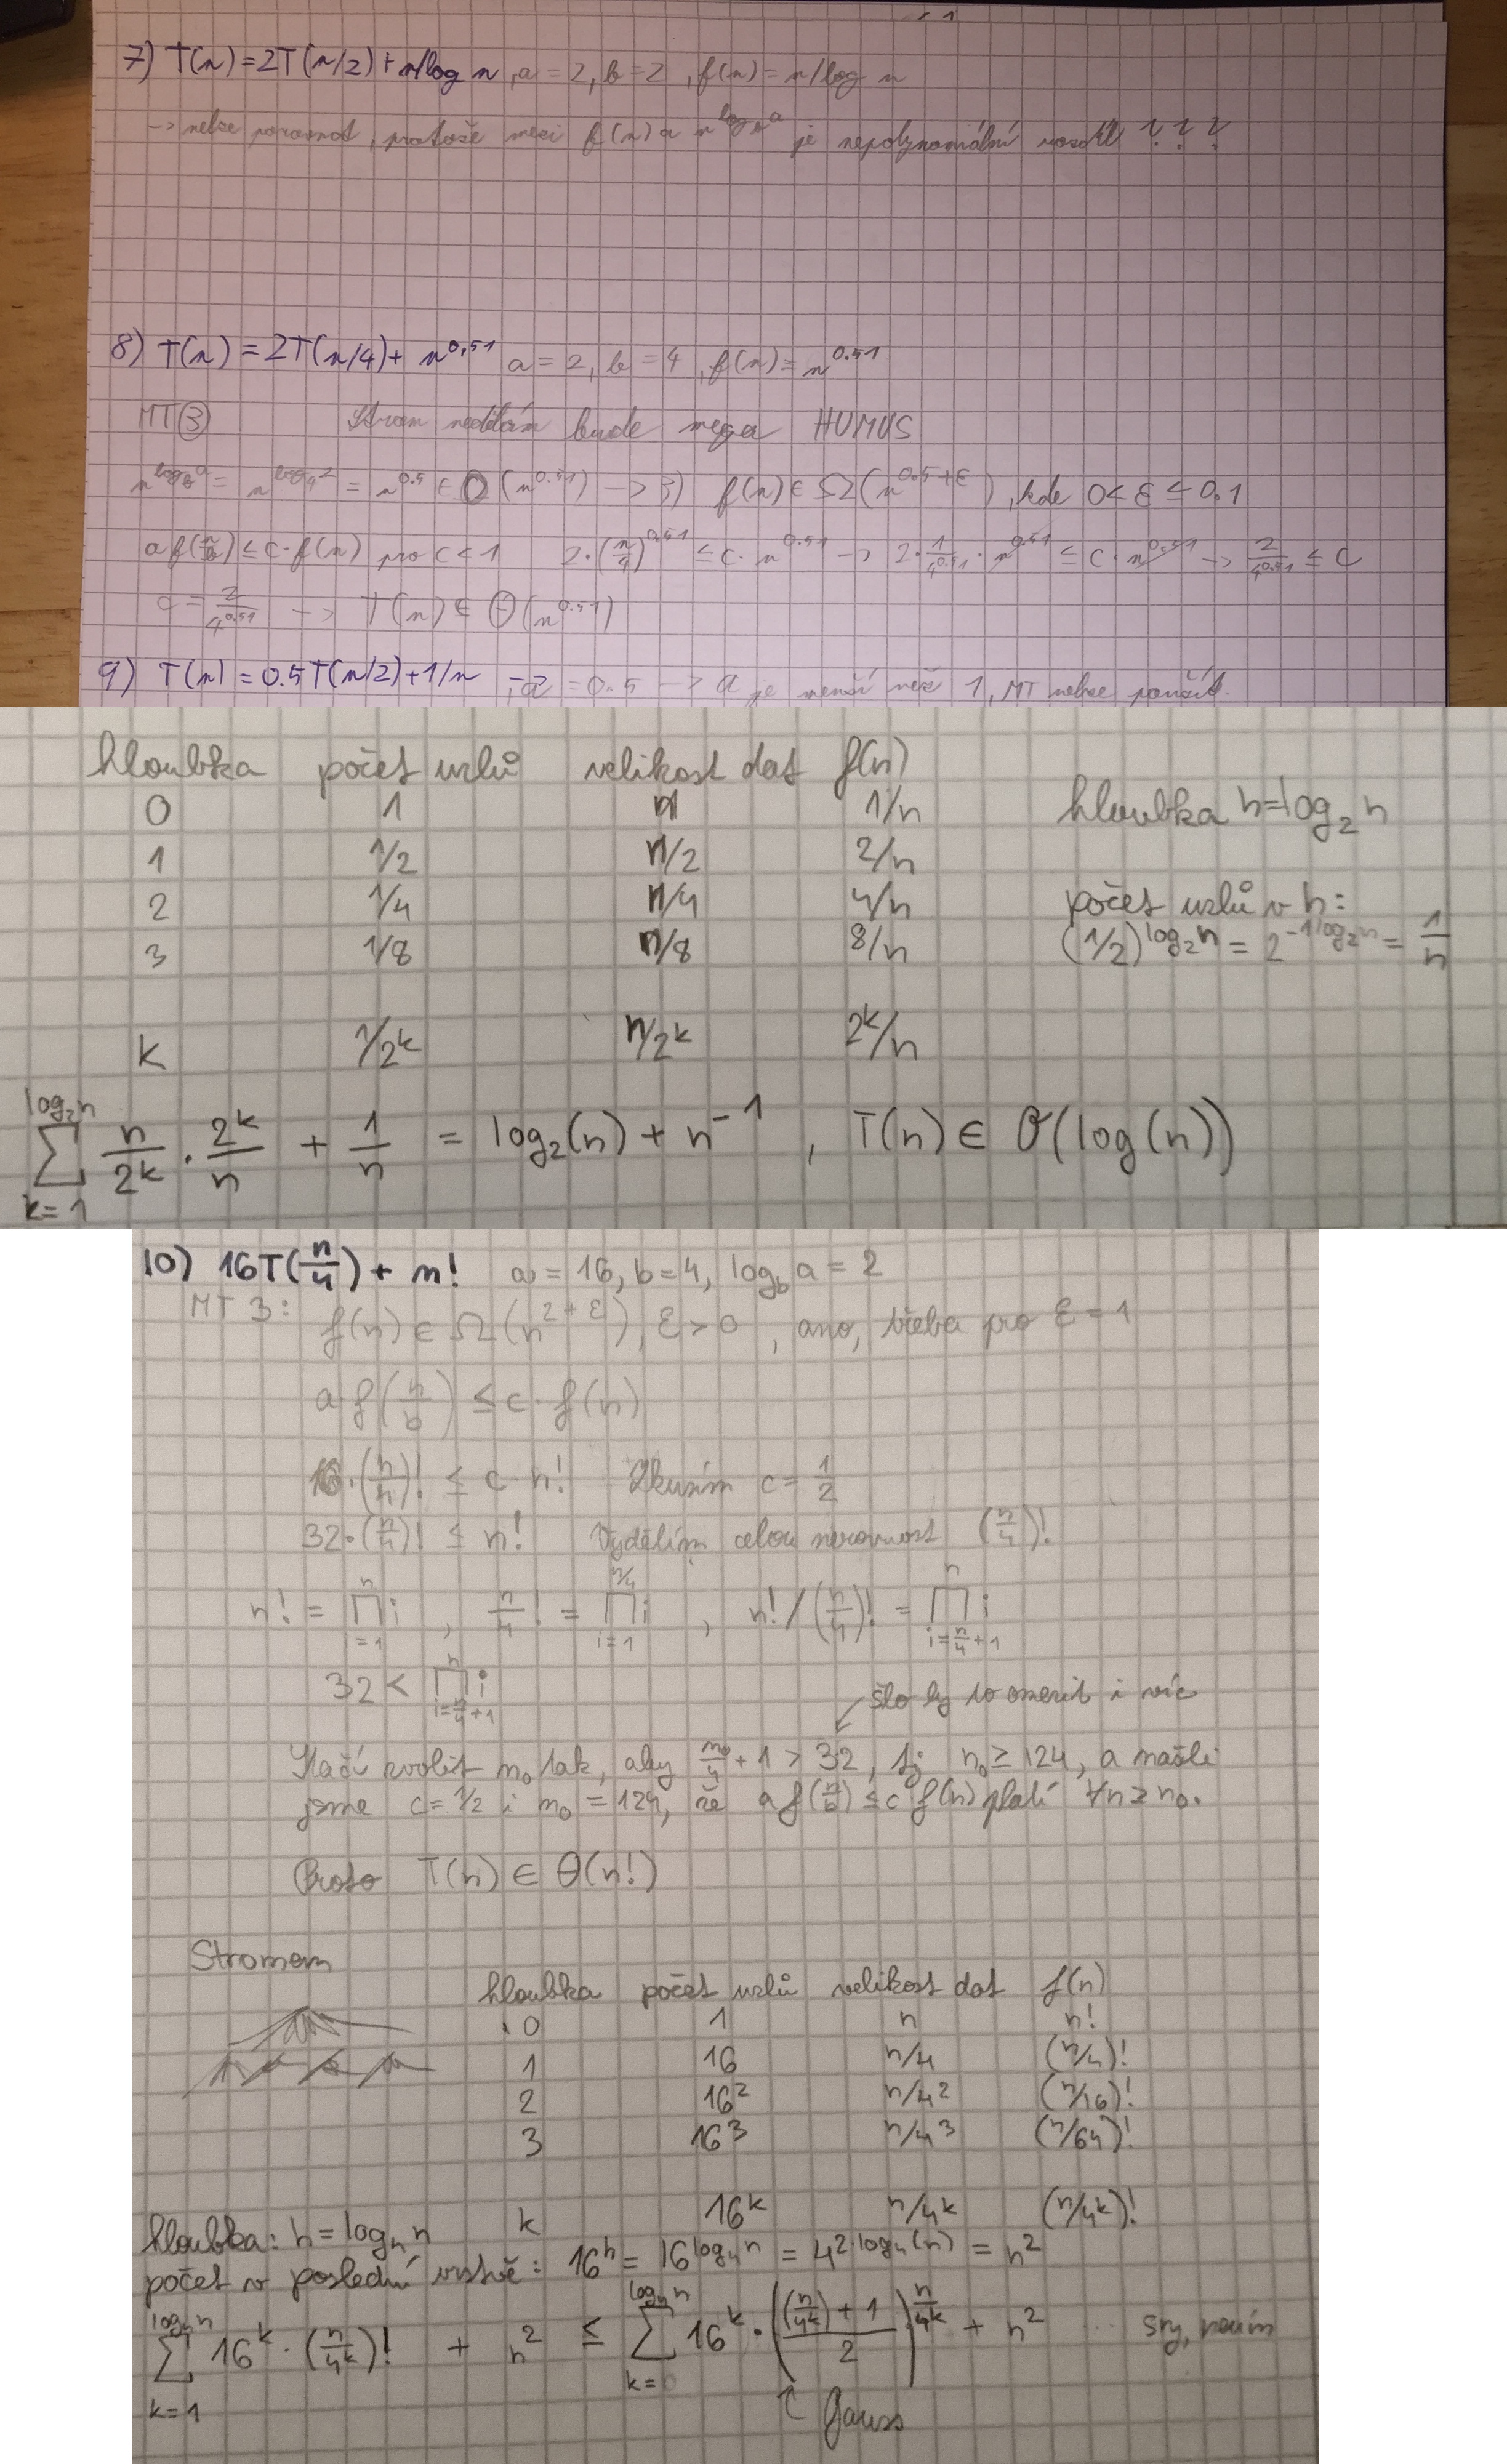 7) T(n)=2T(n/2)+n/log n, a=2, b=2, f(n)=n/log n
-> nelze porovnat, protože mezi f(n) a n^{log_b a} je nepolynomiální rozdíl ???
8) T(n)=2T(n/4)+n^{0,51} a=2, b=4, f(n)=n^{0.51}
MT③ Strom nedělám bude mega HUMUS
n^{log_b a} = n^{log_4 2} = n^{0.5} ∈ O(n^{0.51}) -> 3) f(n)∈Ω(n^{0.5+ε}), kde 0<ε≤0.1
a f(n/b) ≤ c·f(n) pro c<1 2·(n/4)^{0.51} ≤ c·n^{0.51} -> 2·1/4^{0.51}·n^{0.51} ≤ c·n^{0.51} -> 2/4^{0.51} ≤ c
c=2/4^{0.51} -> T(n)∈Θ(n^{0.51})
9) T(n)=0.5T(n/2)+1/n, a=0.5 -> a je menší než 1, MT nelze použít.
hloubka počet uzlů velikost dat f(n)
0 1 n 1/n hloubka h=log₂n
1 1/2 n/2 2/n
2 1/4 n/4 4/n počet uzlů v h:
3 1/8 n/8 8/n (1/2)^{log₂n} = 2^{-1log₂n} = 1/n
k 1/2^k n/2^k 2^k/n
∑_{k=1}^{log₂n} n/2^k · 2^k/n + 1/n = log₂(n) + n^{-1}, T(n)∈O(log(n))
10) 16T(n/4)+n! a=16, b=4, log_b a=2
MT 3: f(n)∈Ω(n^{2+ε}), ε>0, ano, třeba pro ε=1
a f(n/b) ≤ c·f(n)
16·(n/4)! ≤ c·n! Zkusím c=1/2
32·(n/4)! ≤ n! Vydělím celou nerovnost (n/4)!
n! = ∏_{i=1}^{n} i, n/4! = ∏_{i=1}^{n/4} i, n!/(n/4)! = ∏_{i=n/4+1}^{n} i
32 < ∏_{i=n/4+1}^{n} i
šlo by to omezit i víc
Stačí zvolit n₀ tak, aby n₀/4+1 > 32, tj n₀≥124, a našli
jsme c=1/2 i n₀=124, že a f(n/b) ≤ c f(n) platí ∀n≥n₀.
Proto T(n)∈Θ(n!)
Stromem
hloubka počet uzlů velikost dat f(n)
0 1 n n!
1 16 n/4 (n/4)!
2 16² n/4² (n/16)!
3 16³ n/4³ (n/64)!
k 16^k n/4^k (n/4^k)!
hloubka: h=log₄n
počet v poslední vrstvě: 16^h = 16^{log₄n} = 4^{2·log₄(n)} = n²
∑_{k=1}^{log₄n} 16^k·(n/4^k)! + n² ≤ ∑_{k=0}^{log₄n} 16^k·(((n/4^k)+1)/2)^{n/4^k} + n² ... sry, nevím
↑ Gauss